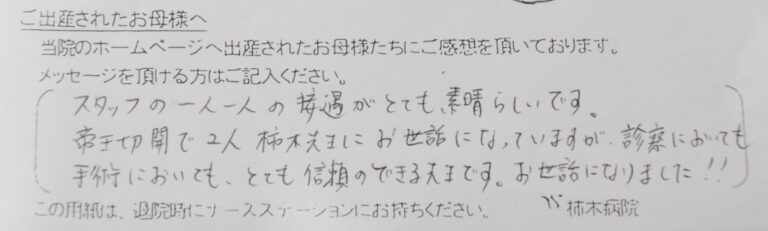 ご出産されたお母様へ
当院のホームページへ出産されたお母様たちにご感想を頂いております。
メッセージを頂ける方はご記入ください。
スタッフの一人一人の接遇がとても、素晴らしいです。
帝王切開で2人 柿木先生にお世話になっていますが、診察においても
手術においても、とても信頼のできる先生です。お世話になりました!!
この用紙は、退院時にナースステーションにお持ちください。 柿木病院